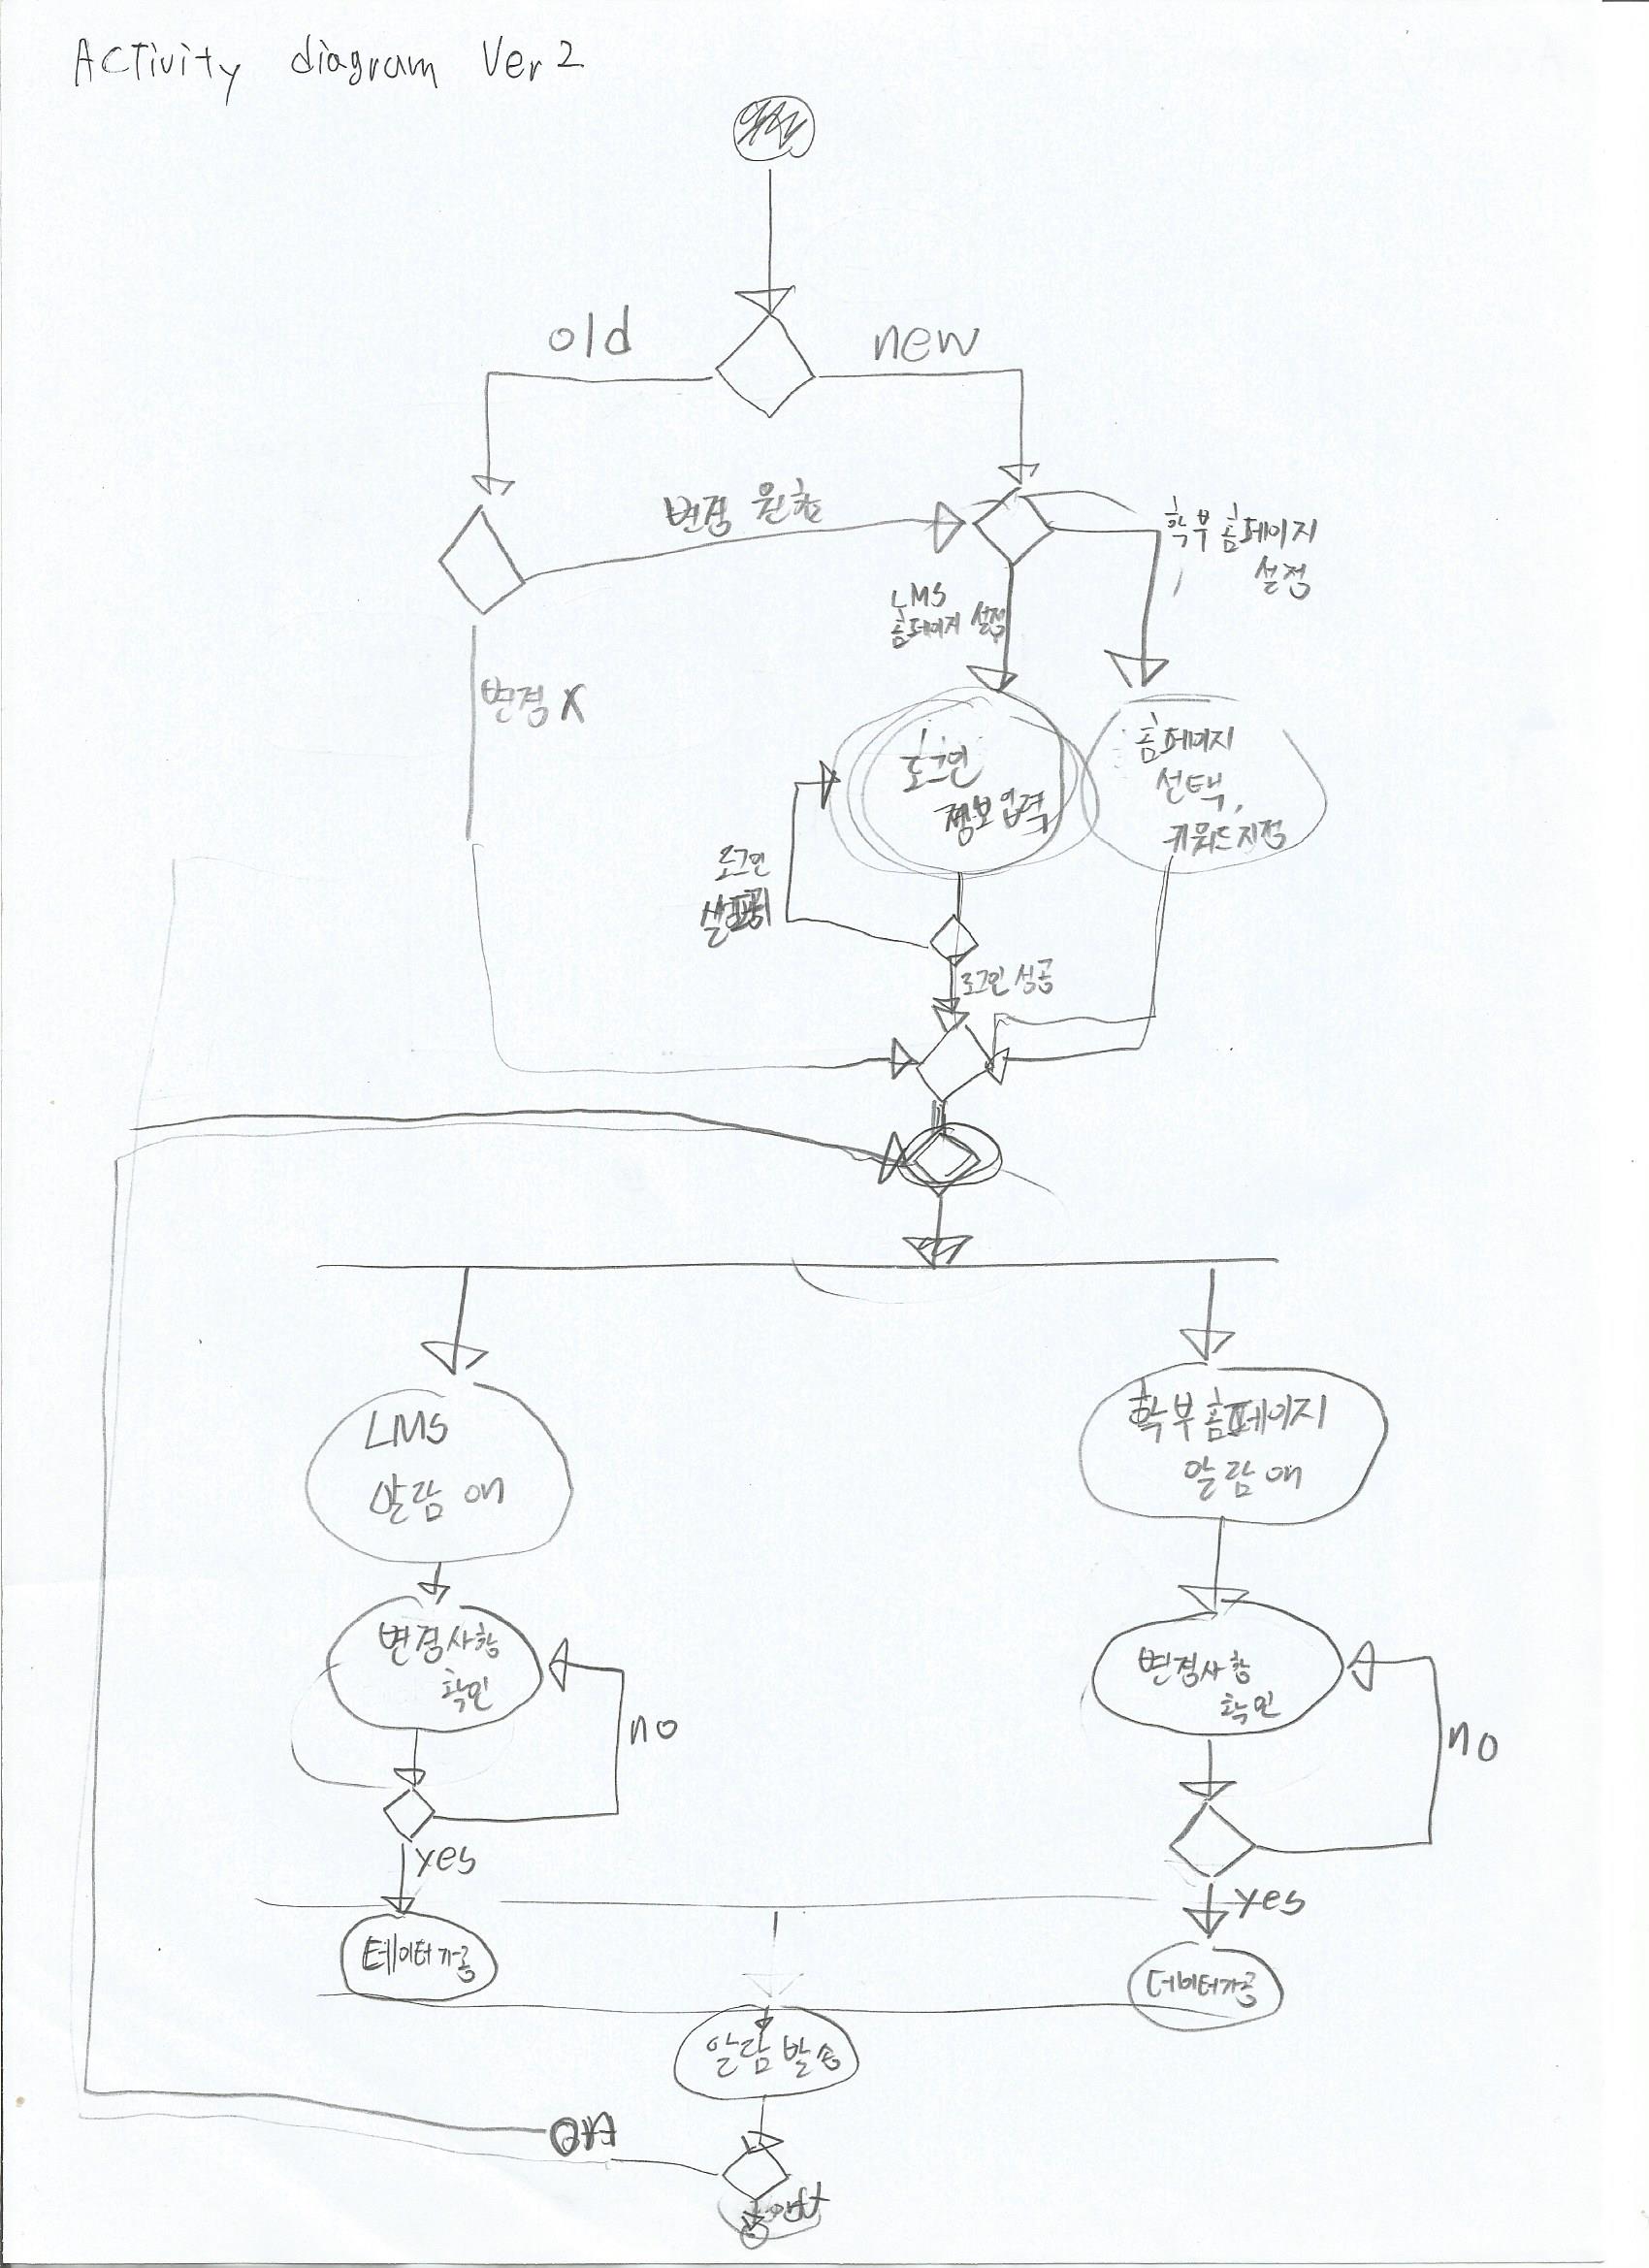 Activity diagram Ver 2
old
new
변경 원함
학부 홈페이지
설정
LMS
홈페이지 설정
변경 X
로그인
정보입력
홈페이지
선택,
키워드지정
로그인
로그인 성공
LMS
알람 애
학부홈페이지
알람 애
변경사항
확인
변경사항
확인
no
no
yes
yes
데이터가공
데이터가공
알람 발송